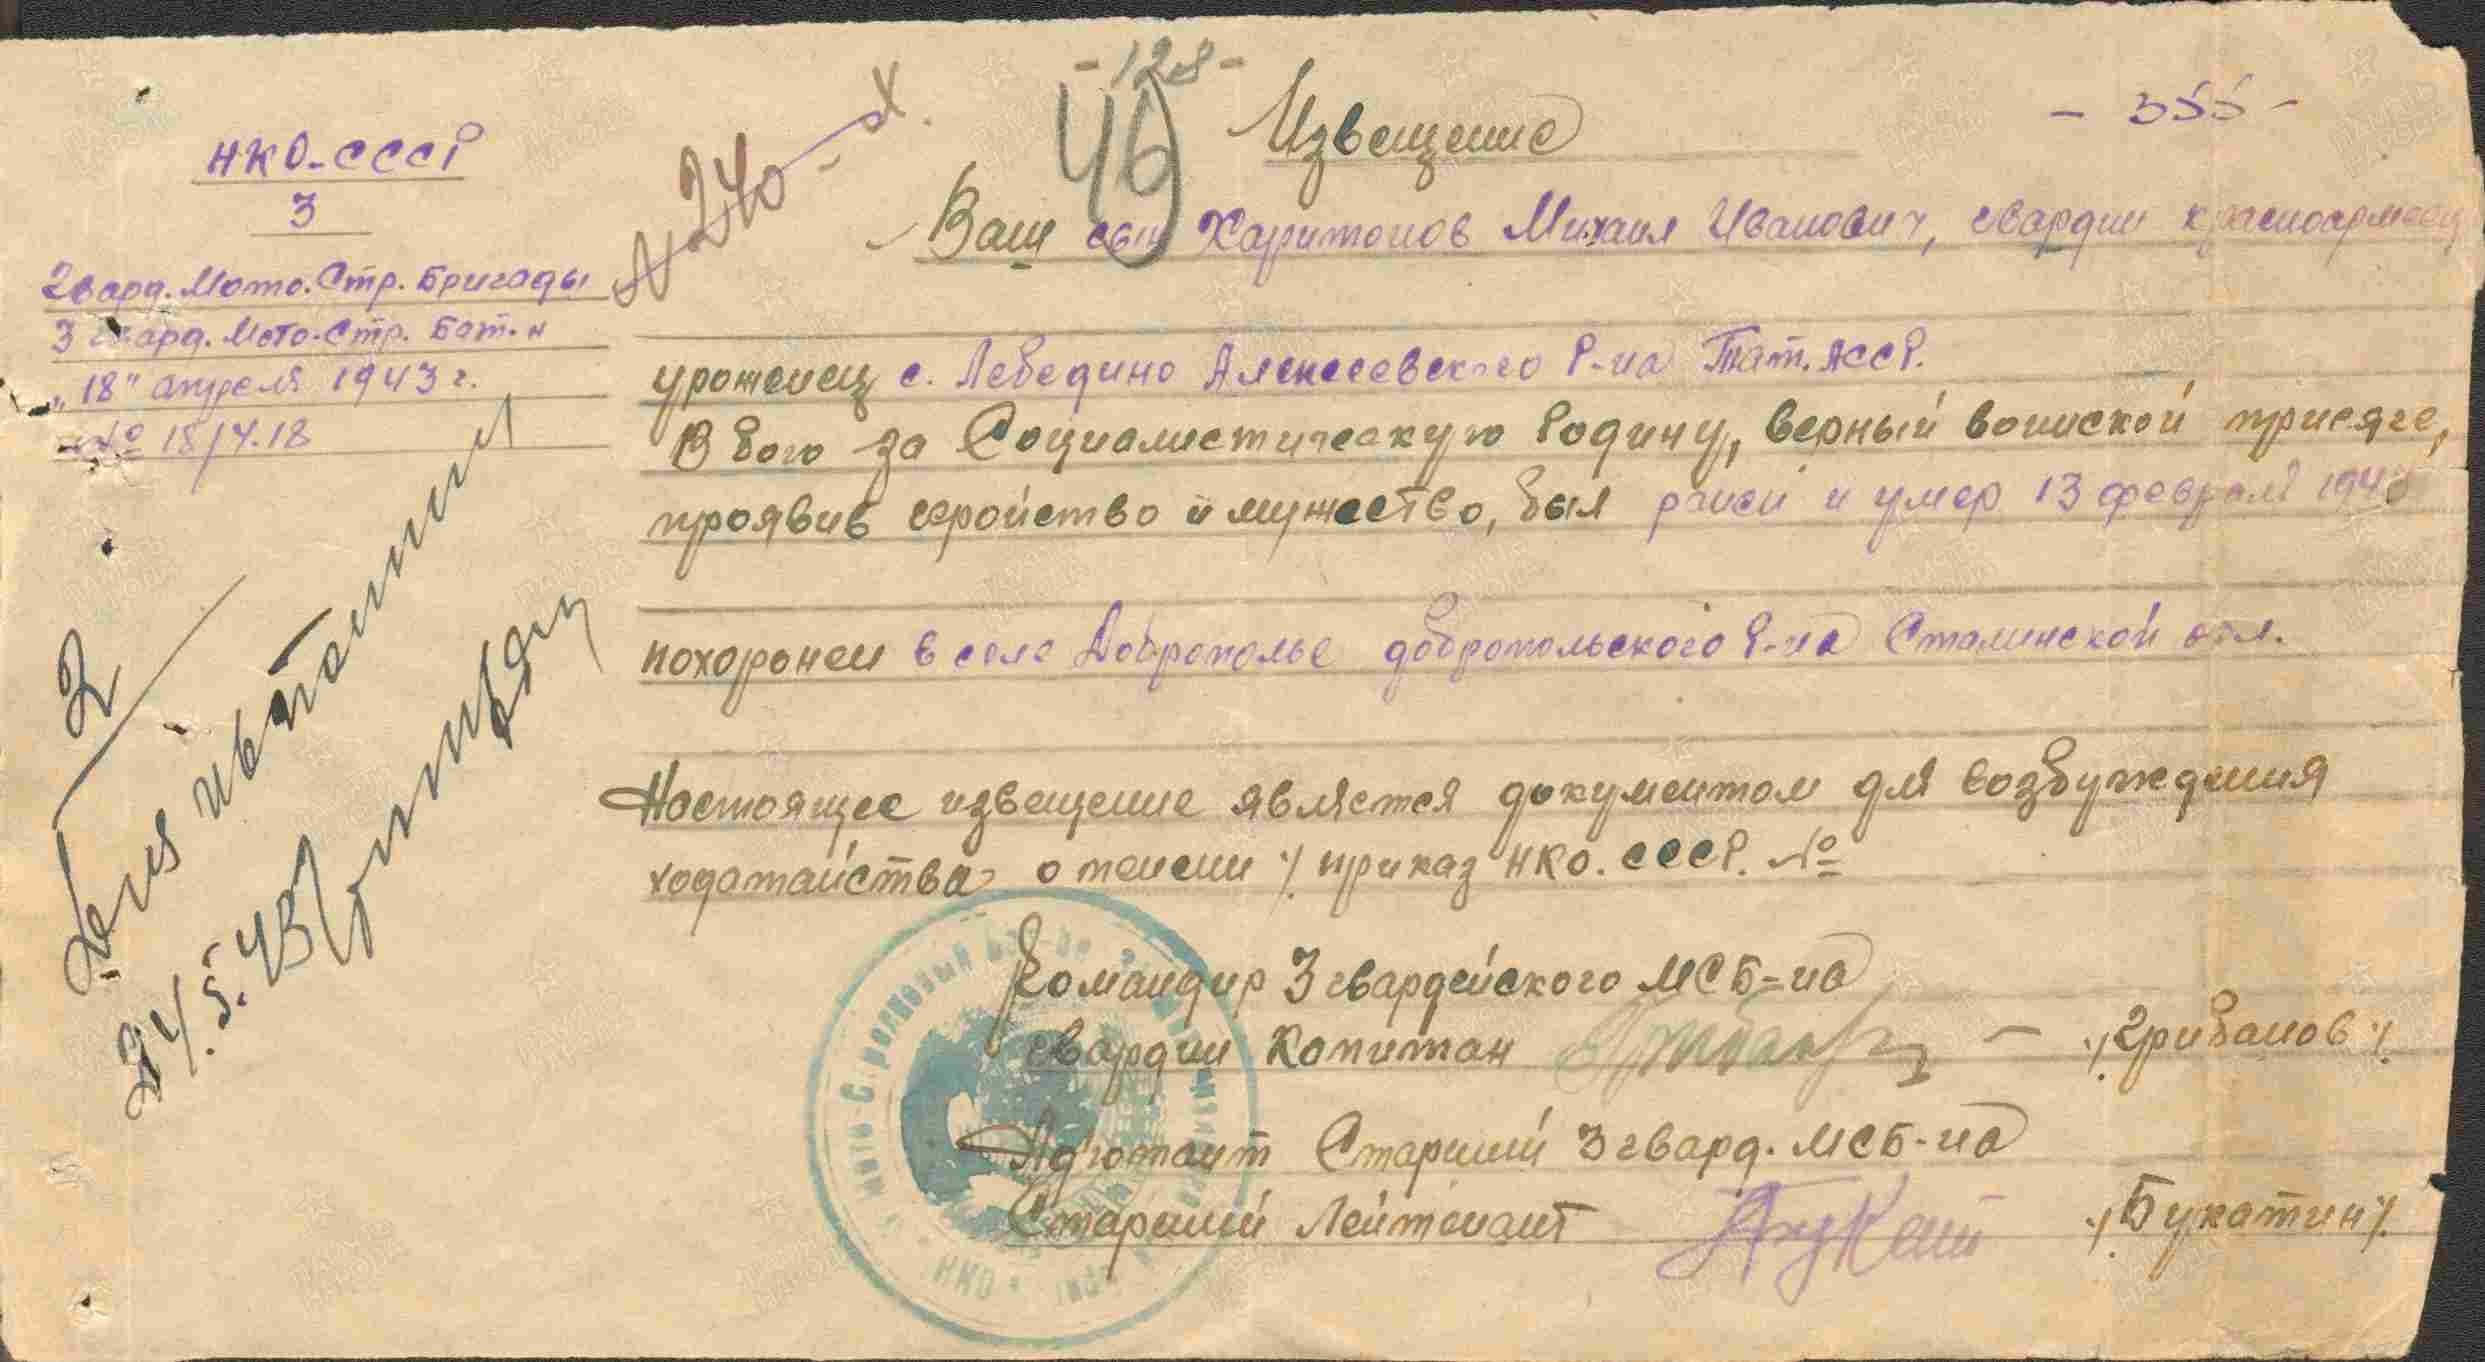 - 128 -
46
Извещение
- 355 -
НКО-СССР
3
2 вард. Мото. Стр. Бригады
3 гвард. Мото-Стр. Бат-н
„18" апреля 1943 г.
№ 18/4.18
№ 240-
Ваш сын Харитонов Михаил Иванович, гвардии красноармеец
уроженец с. Лебедино Алексеевского р-на Тат. АССР.
В бою за Социалистическую Родину, верный воинской присяге,
проявив геройство и мужество, был ранен и умер 13 февраля 1943
похоронен в селе Доброполье добропольского р-на Сталинской обл.
Настоящее извещение является документом для возбуждения
ходатайства о пенсии /. приказ НКО. СССР. №
Командир 3 гвардейского МСБ-на
гвардии Капитан - /. Грибанов /.
Адъютант Старший 3 гвард. МСБ-на
Старший Лейтенант /. Букатин /.
2
24.5.43
Мото-Стрелковый
НКО